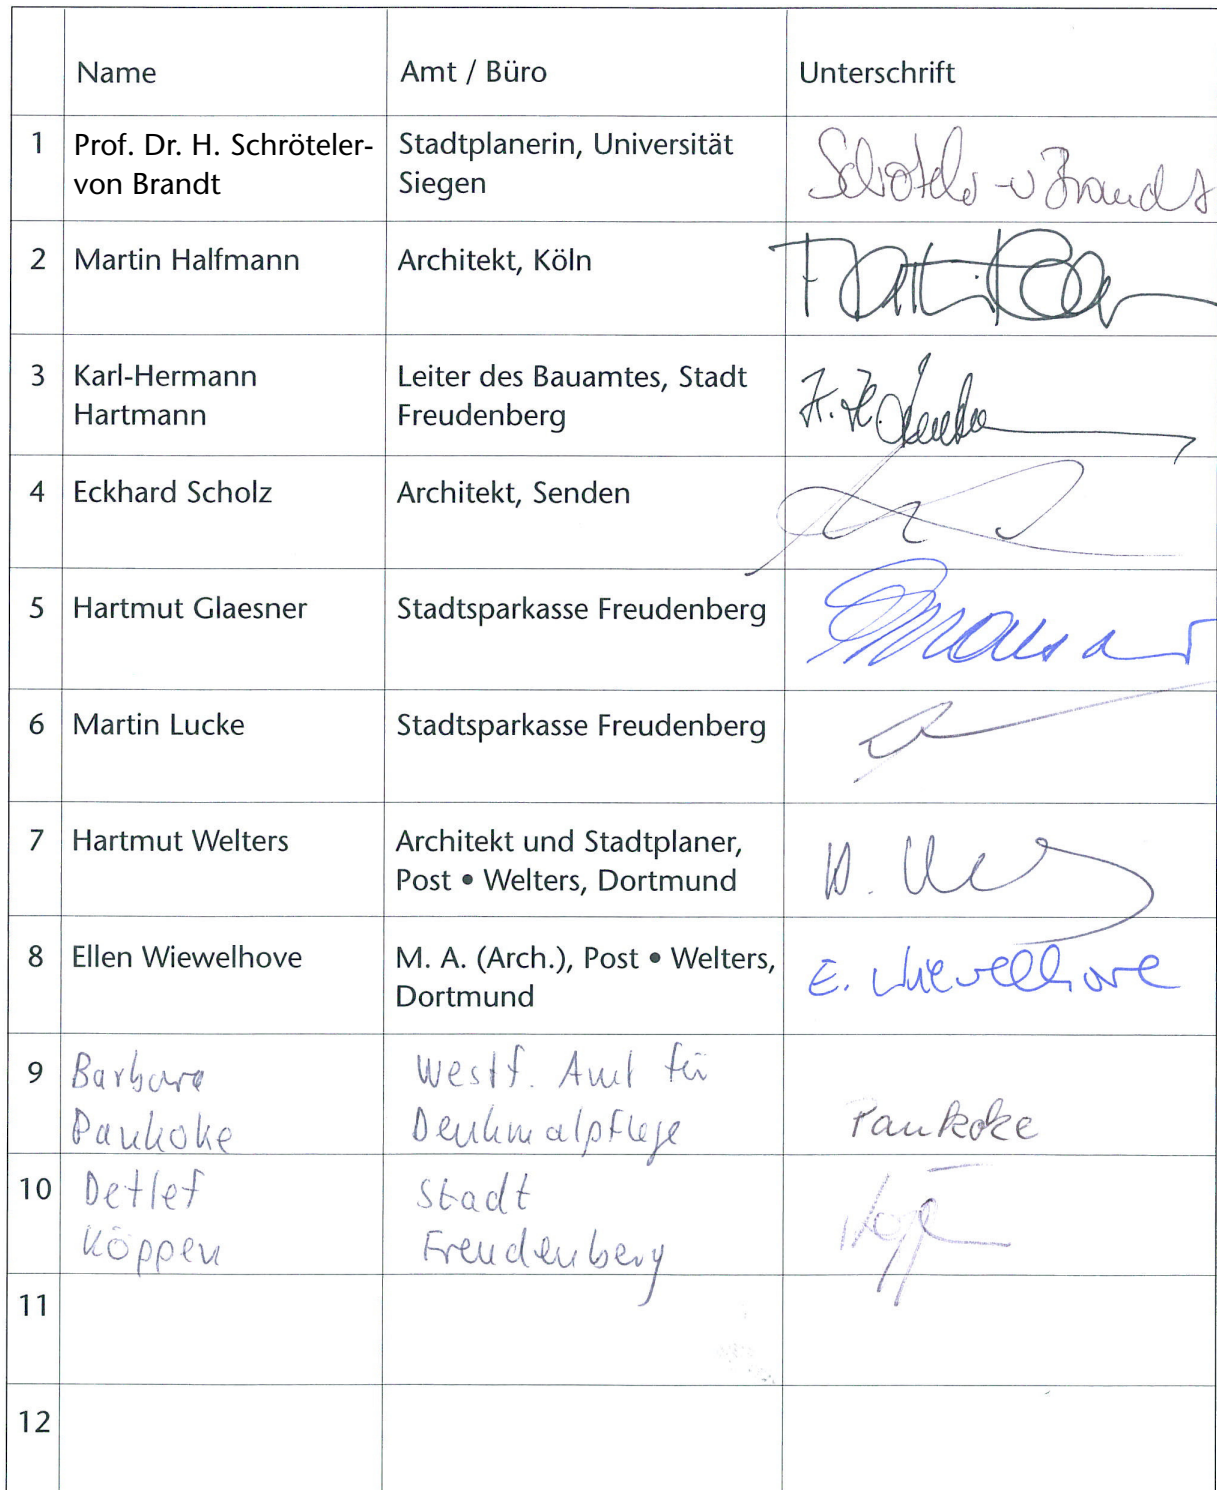 Name Amt / Büro Unterschrift
1 Prof. Dr. H. Schröteler- Stadtplanerin, Universität Schröteler-v Brandt
von Brandt Siegen
2 Martin Halfmann Architekt, Köln
3 Karl-Hermann Leiter des Bauamtes, Stadt
Hartmann Freudenberg
4 Eckhard Scholz Architekt, Senden
5 Hartmut Glaesner Stadtsparkasse Freudenberg
6 Martin Lucke Stadtsparkasse Freudenberg
7 Hartmut Welters Architekt und Stadtplaner,
Post • Welters, Dortmund
8 Ellen Wiewelhove M. A. (Arch.), Post • Welters, E. Wiewelhove
Dortmund
9 Barbara Westf. Amt für
Pankoke Denkmalpflege Pankoke
10 Detlef Stadt
Köppen Freudenberg
11
12